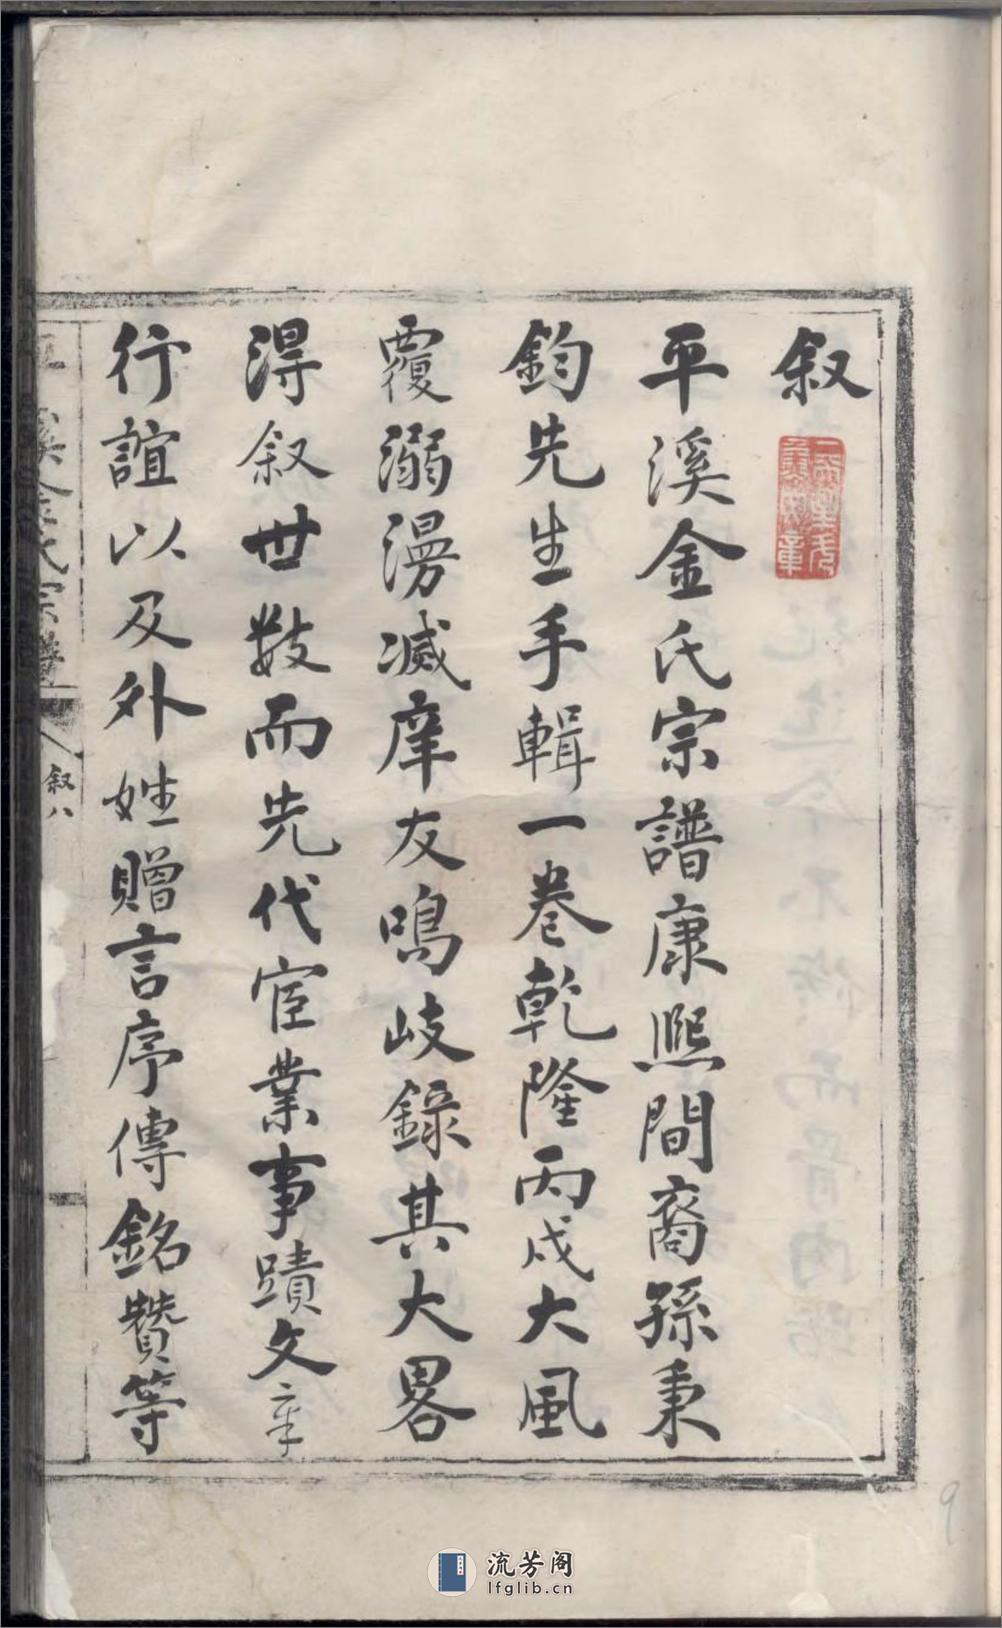 叙
平溪金氏宗譜康熙間裔孫秉
鈞先生手輯一卷乾隆丙戌大風
覆溺漫滅庠友鳴岐錄其大畧
淂叙世數而先代宦業事蹟文章
行誼以及外姓贈言序傳銘贊等
溪金氏宗譜
叙八
9
流芳阁
lfglib.cn